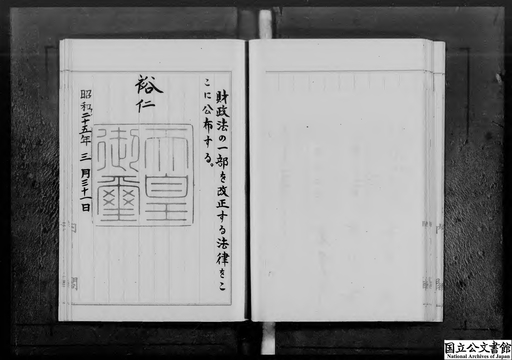 財政法の一部を改正する法律をこ
こに公布する。
裕仁
天皇
御璽
昭和二十五年三月三十一日
内閣
国立公文書館
National Archives of Japan